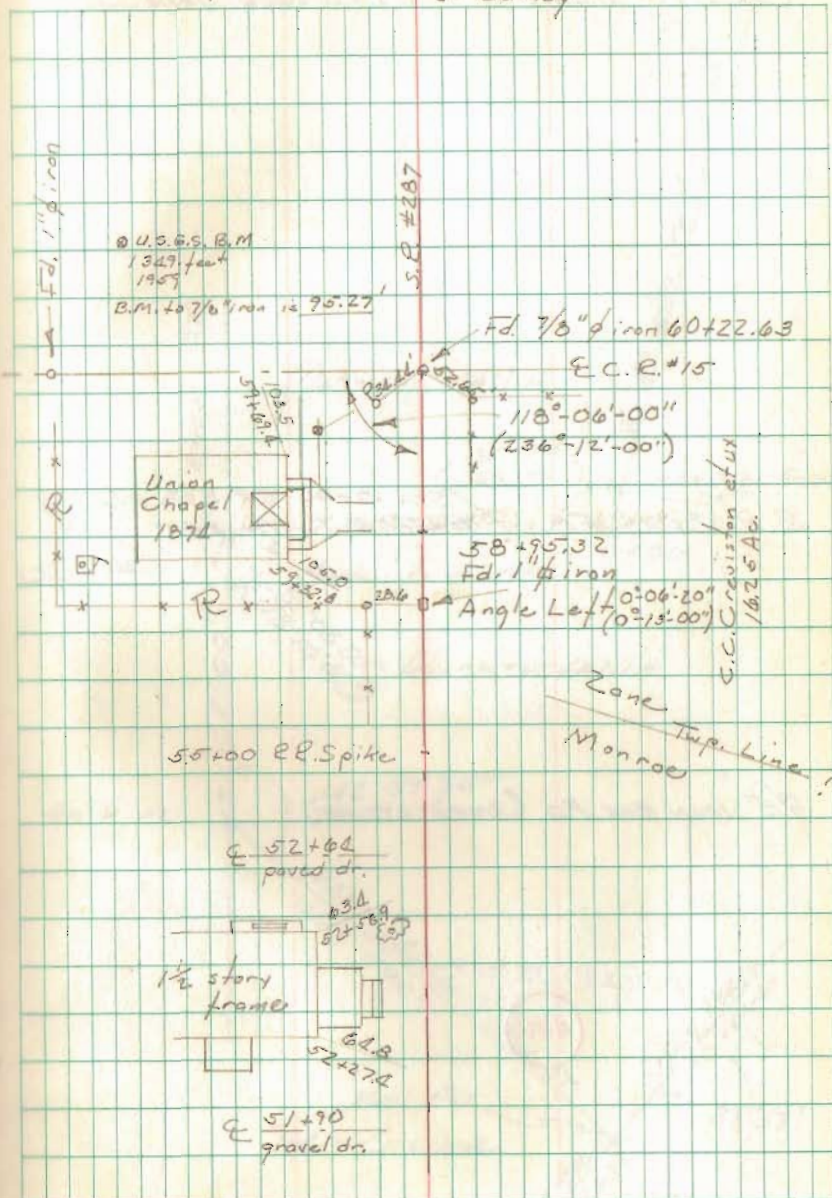 Fd. 1" ϕ iron
S.R. #287
U.S.G.S. B.M
1349 feet
1959
B.M. to 7/8" iron is 95.27'
Fd. 7/8" ϕ iron 60+22.63
℄ C.R. #15
52.65'
118°-06'-00"
(236°-12'-00")
103.5
59+69.4
Union
Chapel
1874
106.0
59+32.8
R
R
28.6
58+95.32
Fd. 1" ϕ iron
Angle Left 0°-06'-20"
(0°-13'-00")
C.C. Creviston et ux
16.25 Ac.
Zane
Twp. Line
Monroe
55+00 R.R. Spike
℄ 52+64
paved dr.
103.4
52+58.9
1½ story
frame
64.8
52+27.4
℄ 51+90
gravel dr.